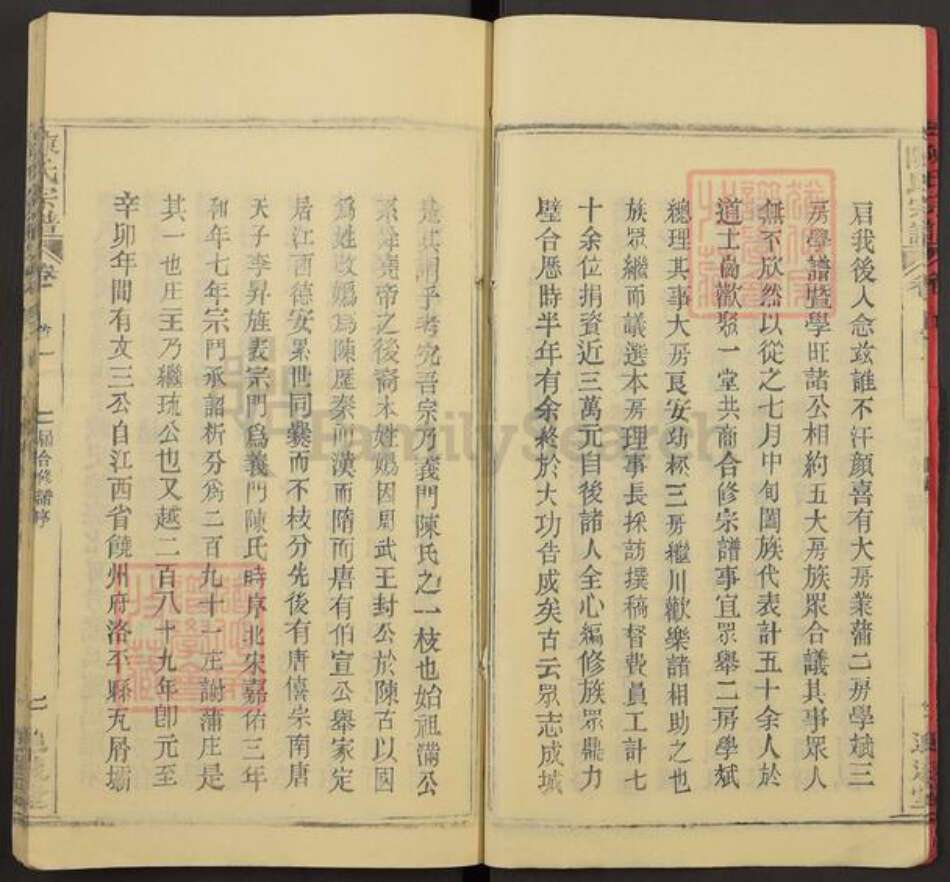 肩我後人念兹誰不汗顏喜有大房業蒲二房學斌三
房學譜暨學旺諸公相約五大房族眾合議其事眾人
無不欣然以從之七月中旬闔族代表計五十余人於
道士崗歡聚一堂共商合修宗譜事宜眾舉二房學斌
總理其事大房良安幼杯三房繼川歡樂諸相助之也
族眾繼而議選本房理事長採訪撰稿督費員工計七
十余位捐資近三萬元自後諸人全心編修族眾鼎力
璧合歷時半年有余終於大功告成矣古云眾志成城
是其謂乎考究吾宗乃義門陳氏之一枝也始祖滿公
系舜堯帝之後裔本姓媯因周武王封公於陳古以囯
爲姓改媯爲陳歷秦而漢而隋而唐有伯宣公舉家定
居江西德安累世同爨而不枝分先後有唐僖宗南唐
天子李昇旌表宗門爲義門陳氏時序北宋嘉佑三年
和年七年宗門承詔析分爲二百九十一庄謝蒲庄是
其一也庄主乃繼琉公也又越二百八十九年卽元至
辛卯年間有文三公自江西省饒州府洛平縣瓦屑壩
陳氏宗譜
卷
合修譜序
二
陳氏宗譜
FamilySearch